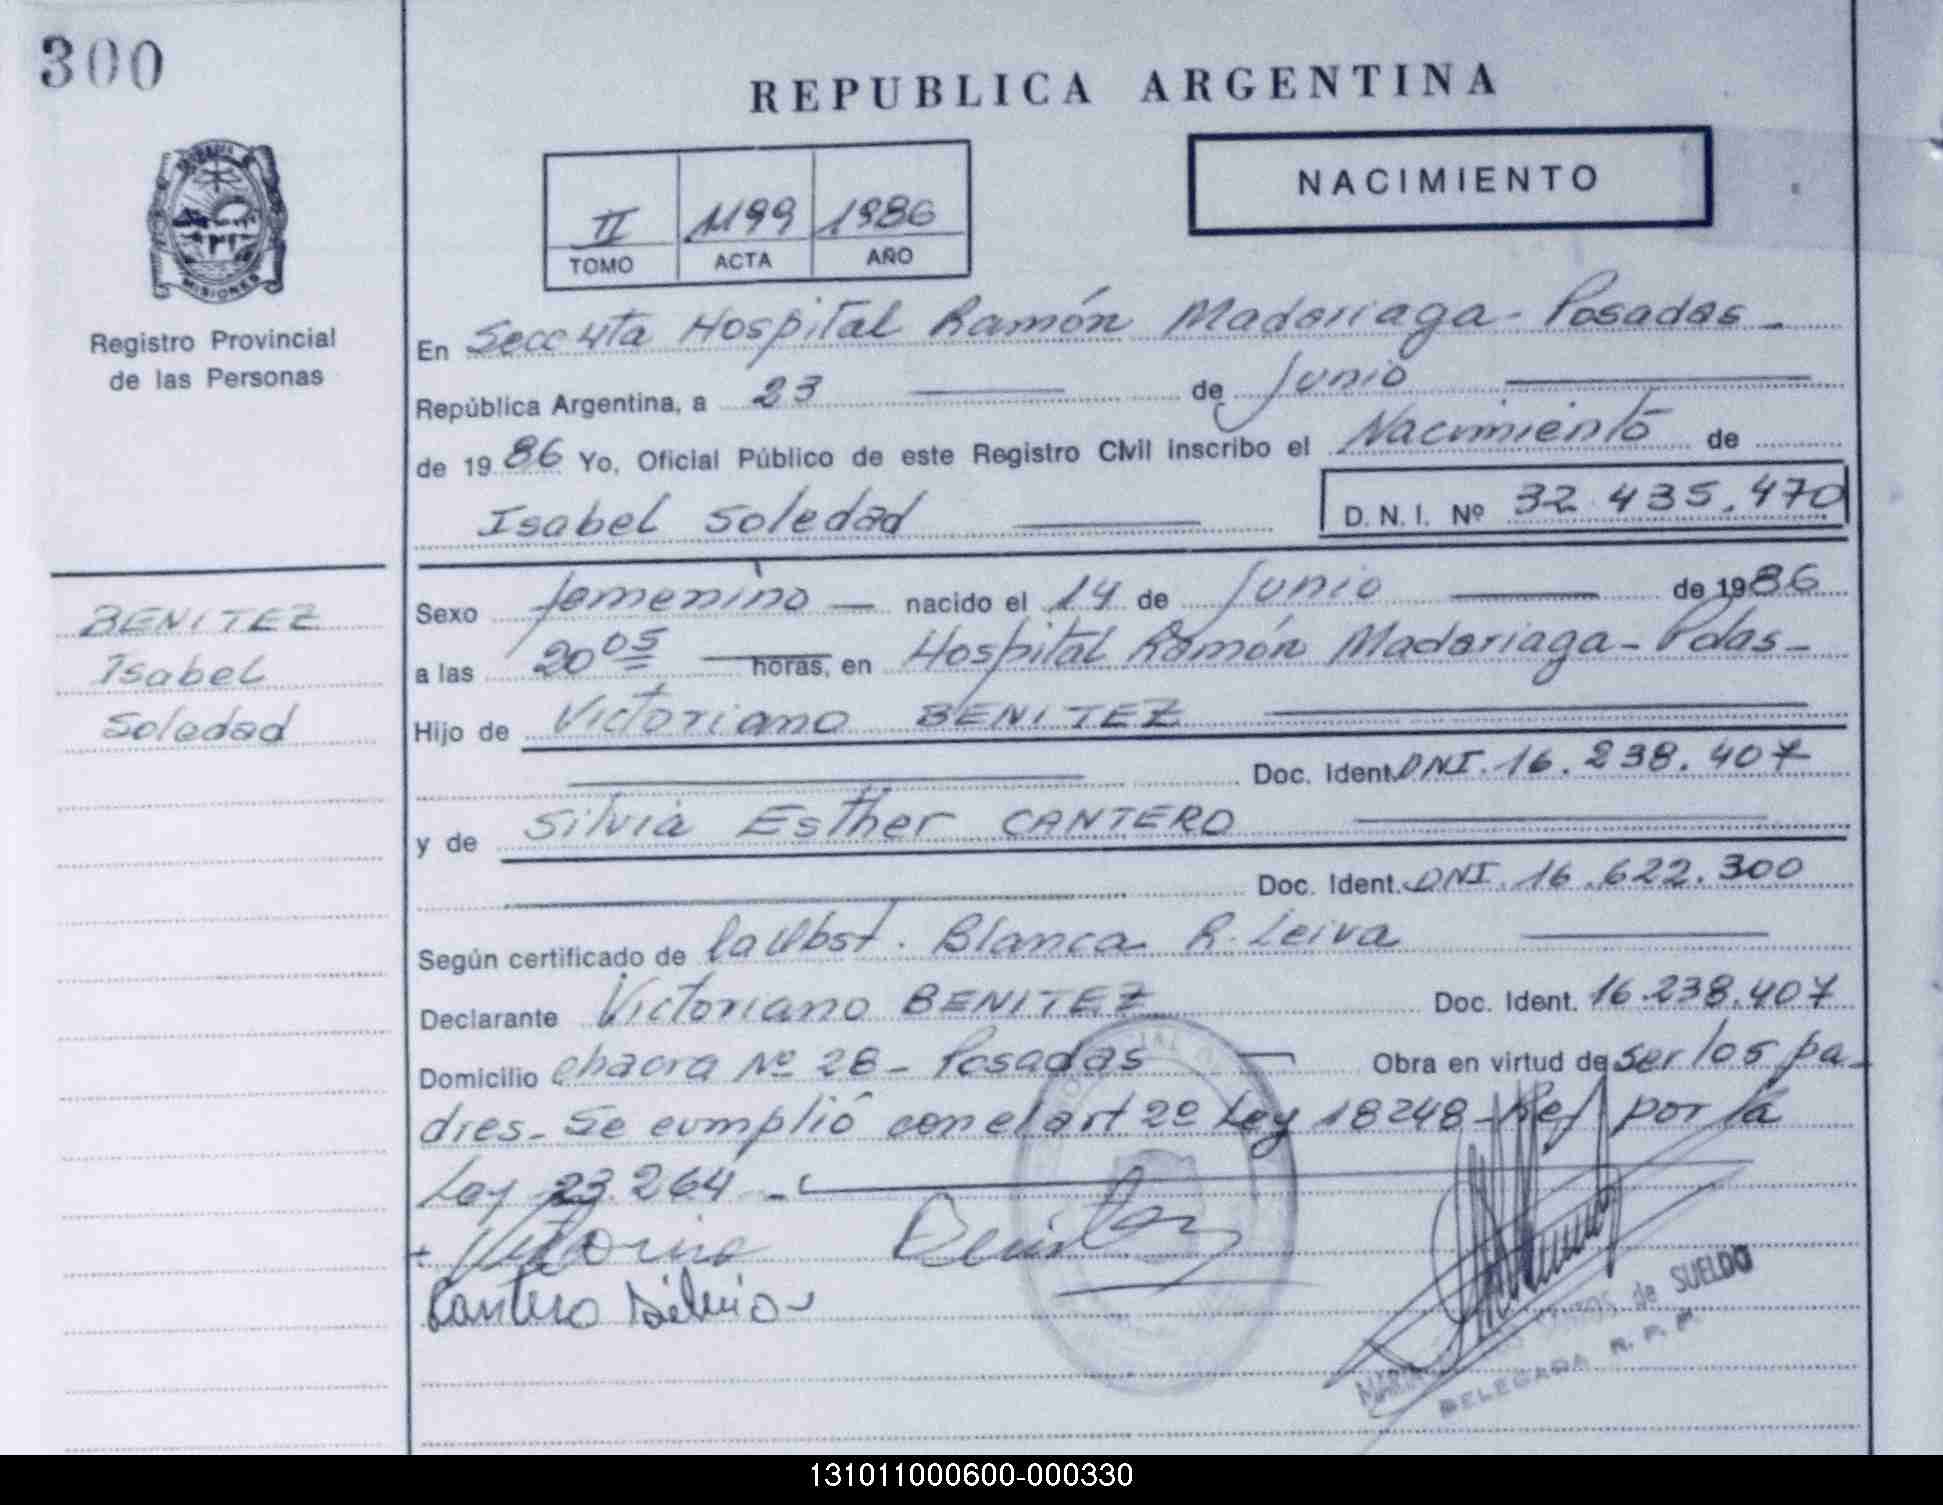 300
REPUBLICA ARGENTINA
NACIMIENTO
II 1199 1986
TOMO ACTA AÑO
MISIONES
Registro Provincial
de las Personas
En Secc 4ta Hospital Ramón Madariaga - Posadas -
República Argentina, a 23 de Junio
de 1986 Yo, Oficial Público de este Registro Civil inscribo el Nacimiento de
Isabel Soledad D.N.I. Nº 32.435.470
BENITEZ
Isabel
Soledad
Sexo femenino — nacido el 14 de Junio de 1986
a las 20 05 horas, en Hospital Ramón Madariaga - Pdas -
Hijo de Victoriano BENITEZ
Doc. Ident. DNI. 16.238.407
y de Silvia Esther CANTERO
Doc. Ident. DNI. 16.622.300
Según certificado de la Obst. Blanca R. Leiva
Declarante Victoriano BENITEZ Doc. Ident. 16.238.407
Domicilio chacra Nº 28 - Posadas Obra en virtud de ser los pa-
dres - Se cumplió con el art 2º Ley 18248 - Ref por la
Ley 23.264 -
Benitez
Cantero Silvia
de SUELDO
DELEGADA R. P. P.
131011000600-000330